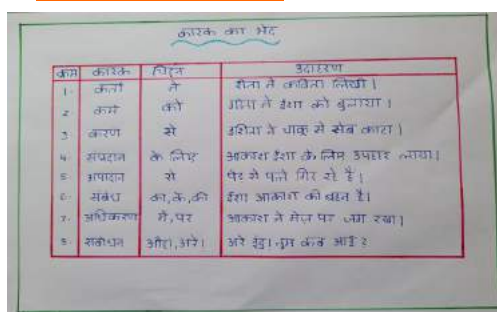 कारक का भेद
क्रम कारक चिह्न उदाहरण
1. कर्ता ने गीता ने कविता लिखी।
2. कर्म को गीता ने ईशा को बुलाया।
3 करण से इशिता ने चाकू से सेब काटा।
4 संप्रदान के लिए आकाश ईशा के लिए उपहार लाया।
5 अपादान से पेड़ से पत्ते गिर रहे हैं।
6. संबंध का, के, की ईशा आकाश की बहन है।
7. अधिकरण में, पर आकाश ने मेज़ पर जग रखा।
8. संबोधन ओहो, अरे। अरे इंदु। तुम कब आई?